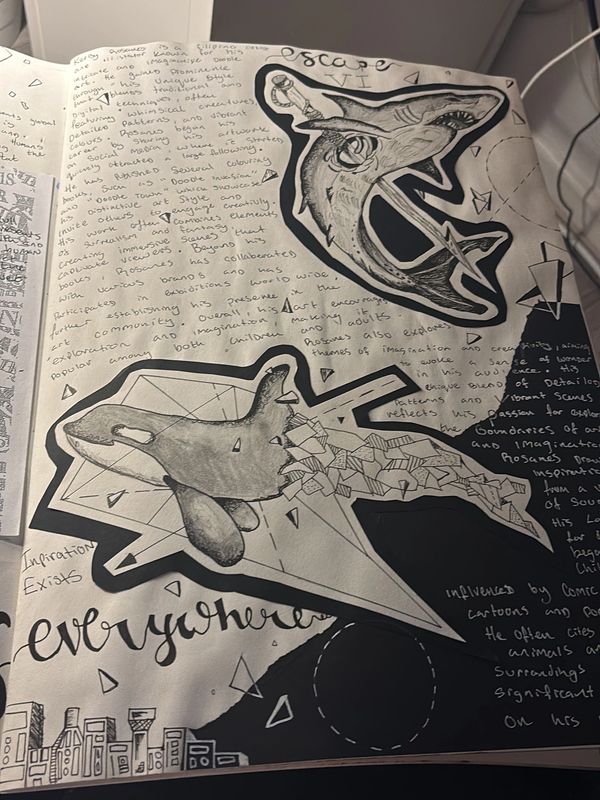 escape
VI
Kerby Rosanes is a filipino artist
and illustrator known for his
intricate and imaginative doodle
art. He gained prominence
through his unique style
blends traditional and
Digital techniques, often
featuring whimsical creatures,
Detailed patterns, and vibrant
colours. Rosanes began his
career by sharing his artwork
on social media, where it
quickly attracted a large following
He has published several colouring
books such as "Doodle invasion"
and "Doodle Town" which showcase
his distinctive art style and
invite others to engage creatively
His work often combines elements
of surrealism and fantasy that
creating immersive scenes that
captivate viewers. Beyond his
books, Rosanes has collaborated
with various brands and has
Participated in exhibitions world wide,
further establishing his presence in the
art community. Overall, his art encourages
exploration and imagination making it
popular among both children and adults.
Rosanes also explores
themes of imagination and creativity, aiming
to evoke a sense of wonder
in his audience. His
unique blend of detailed
patterns and vibrant scenes
reflects his passion for
the boundaries of
and imagination
Rosanes
inspiration
from a
of
His
for
began
Infiration
Exists
everywhere
influenced by comic
cartoons and
He often cites
animals
surrondings
significant
on his